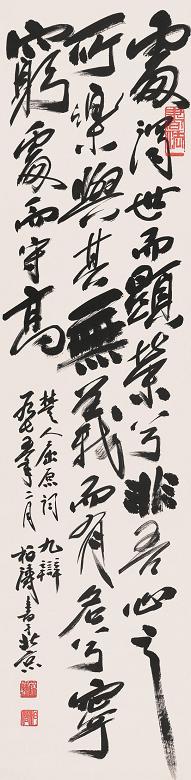 處濁世而顯榮兮非吾心之
所樂與其無義而有名兮寧
窮處而守高
楚人屈原詞 九辯
年二月 柏濤書于北京